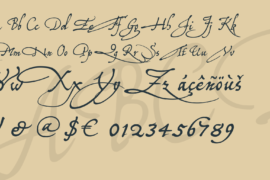 Bb Cc Dd Ee Ff Gg Hh Ii Jj Kk
Mm Nn Oo Pp Qq Rr Ss Tt Uu Vv
Ww Xx Yy Zz áçêñöùš
! & @ $ € 0123456789